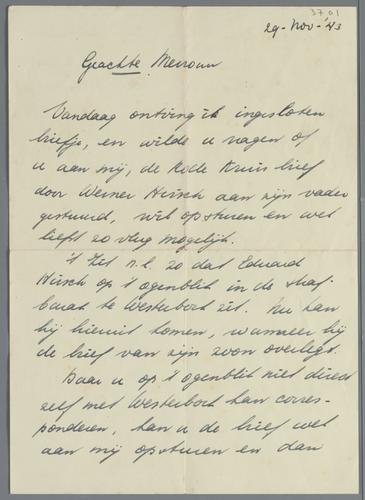 3701
29-Nov-'43
Geachte Mevrouw
Vandaag ontving ik ingesloten
briefje, en wilde u vragen of
u aan mij, de Rode Kruis brief
door Werner Hirsch aan zijn vader
gestuurd, wilt opsturen en wel
liefst zo vlug mogelijk.
't Zit n.l. zo dat Eduard
Hirsch op 't ogenblik in de straf-
barak te Westerbork zit. Nu kan
hij hieruit komen, wanneer hij
de brief van zijn zoon overlegt.
Daar u op 't ogenblik niet direct
zelf met Westerbork kan corres-
ponderen, kan u de brief wel
aan mij opsturen en dan